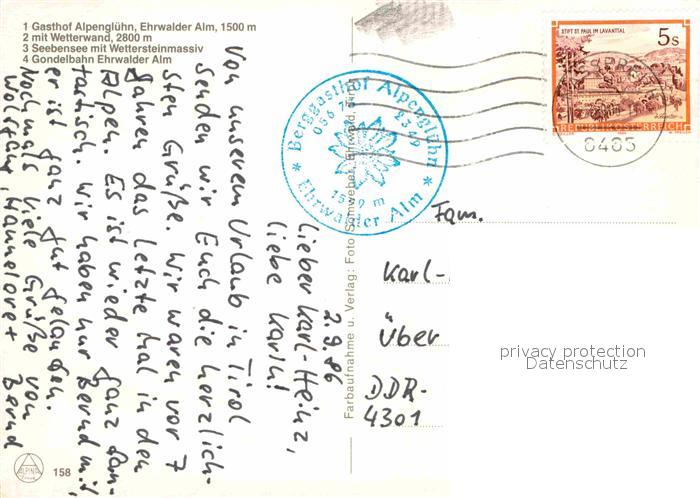 1 Gasthof Alpenglühn, Ehrwalder Alm, 1500 m
2 mit Wetterwand, 2800 m
3 Seebensee mit Wettersteinmassiv
4 Gondelbahn Ehrwalder Alm
2.9.86
Lieber Karl-Heinz,
liebe Karin!
Von unserem Urlaub in Tirol
senden wir Euch die herzlich-
sten Grüße. Wir waren vor 7
Jahren das letzte Mal in den
Alpen. Es ist wieder ganz fan-
tastisch. Wir haben nur Bernd mit,
er ist ganz gut gelaufen.
Nochmals viele Grüße von
Wolfgang, Hannelore + Bernd
Berggasthof Alpenglühn
0567 2349
1500 m
* Ehrwalder Alm *
Farbaufnahme u. Verlag: Foto Somweber, Ehrwald, Tirol
STIFT ST. PAUL IM LAVANTTAL
5s
REPUBLIK ÖSTERREICH
6405
Fam.
Karl-
Über
DDR-
4301
privacy protection
Datenschutz
ALPINA
158